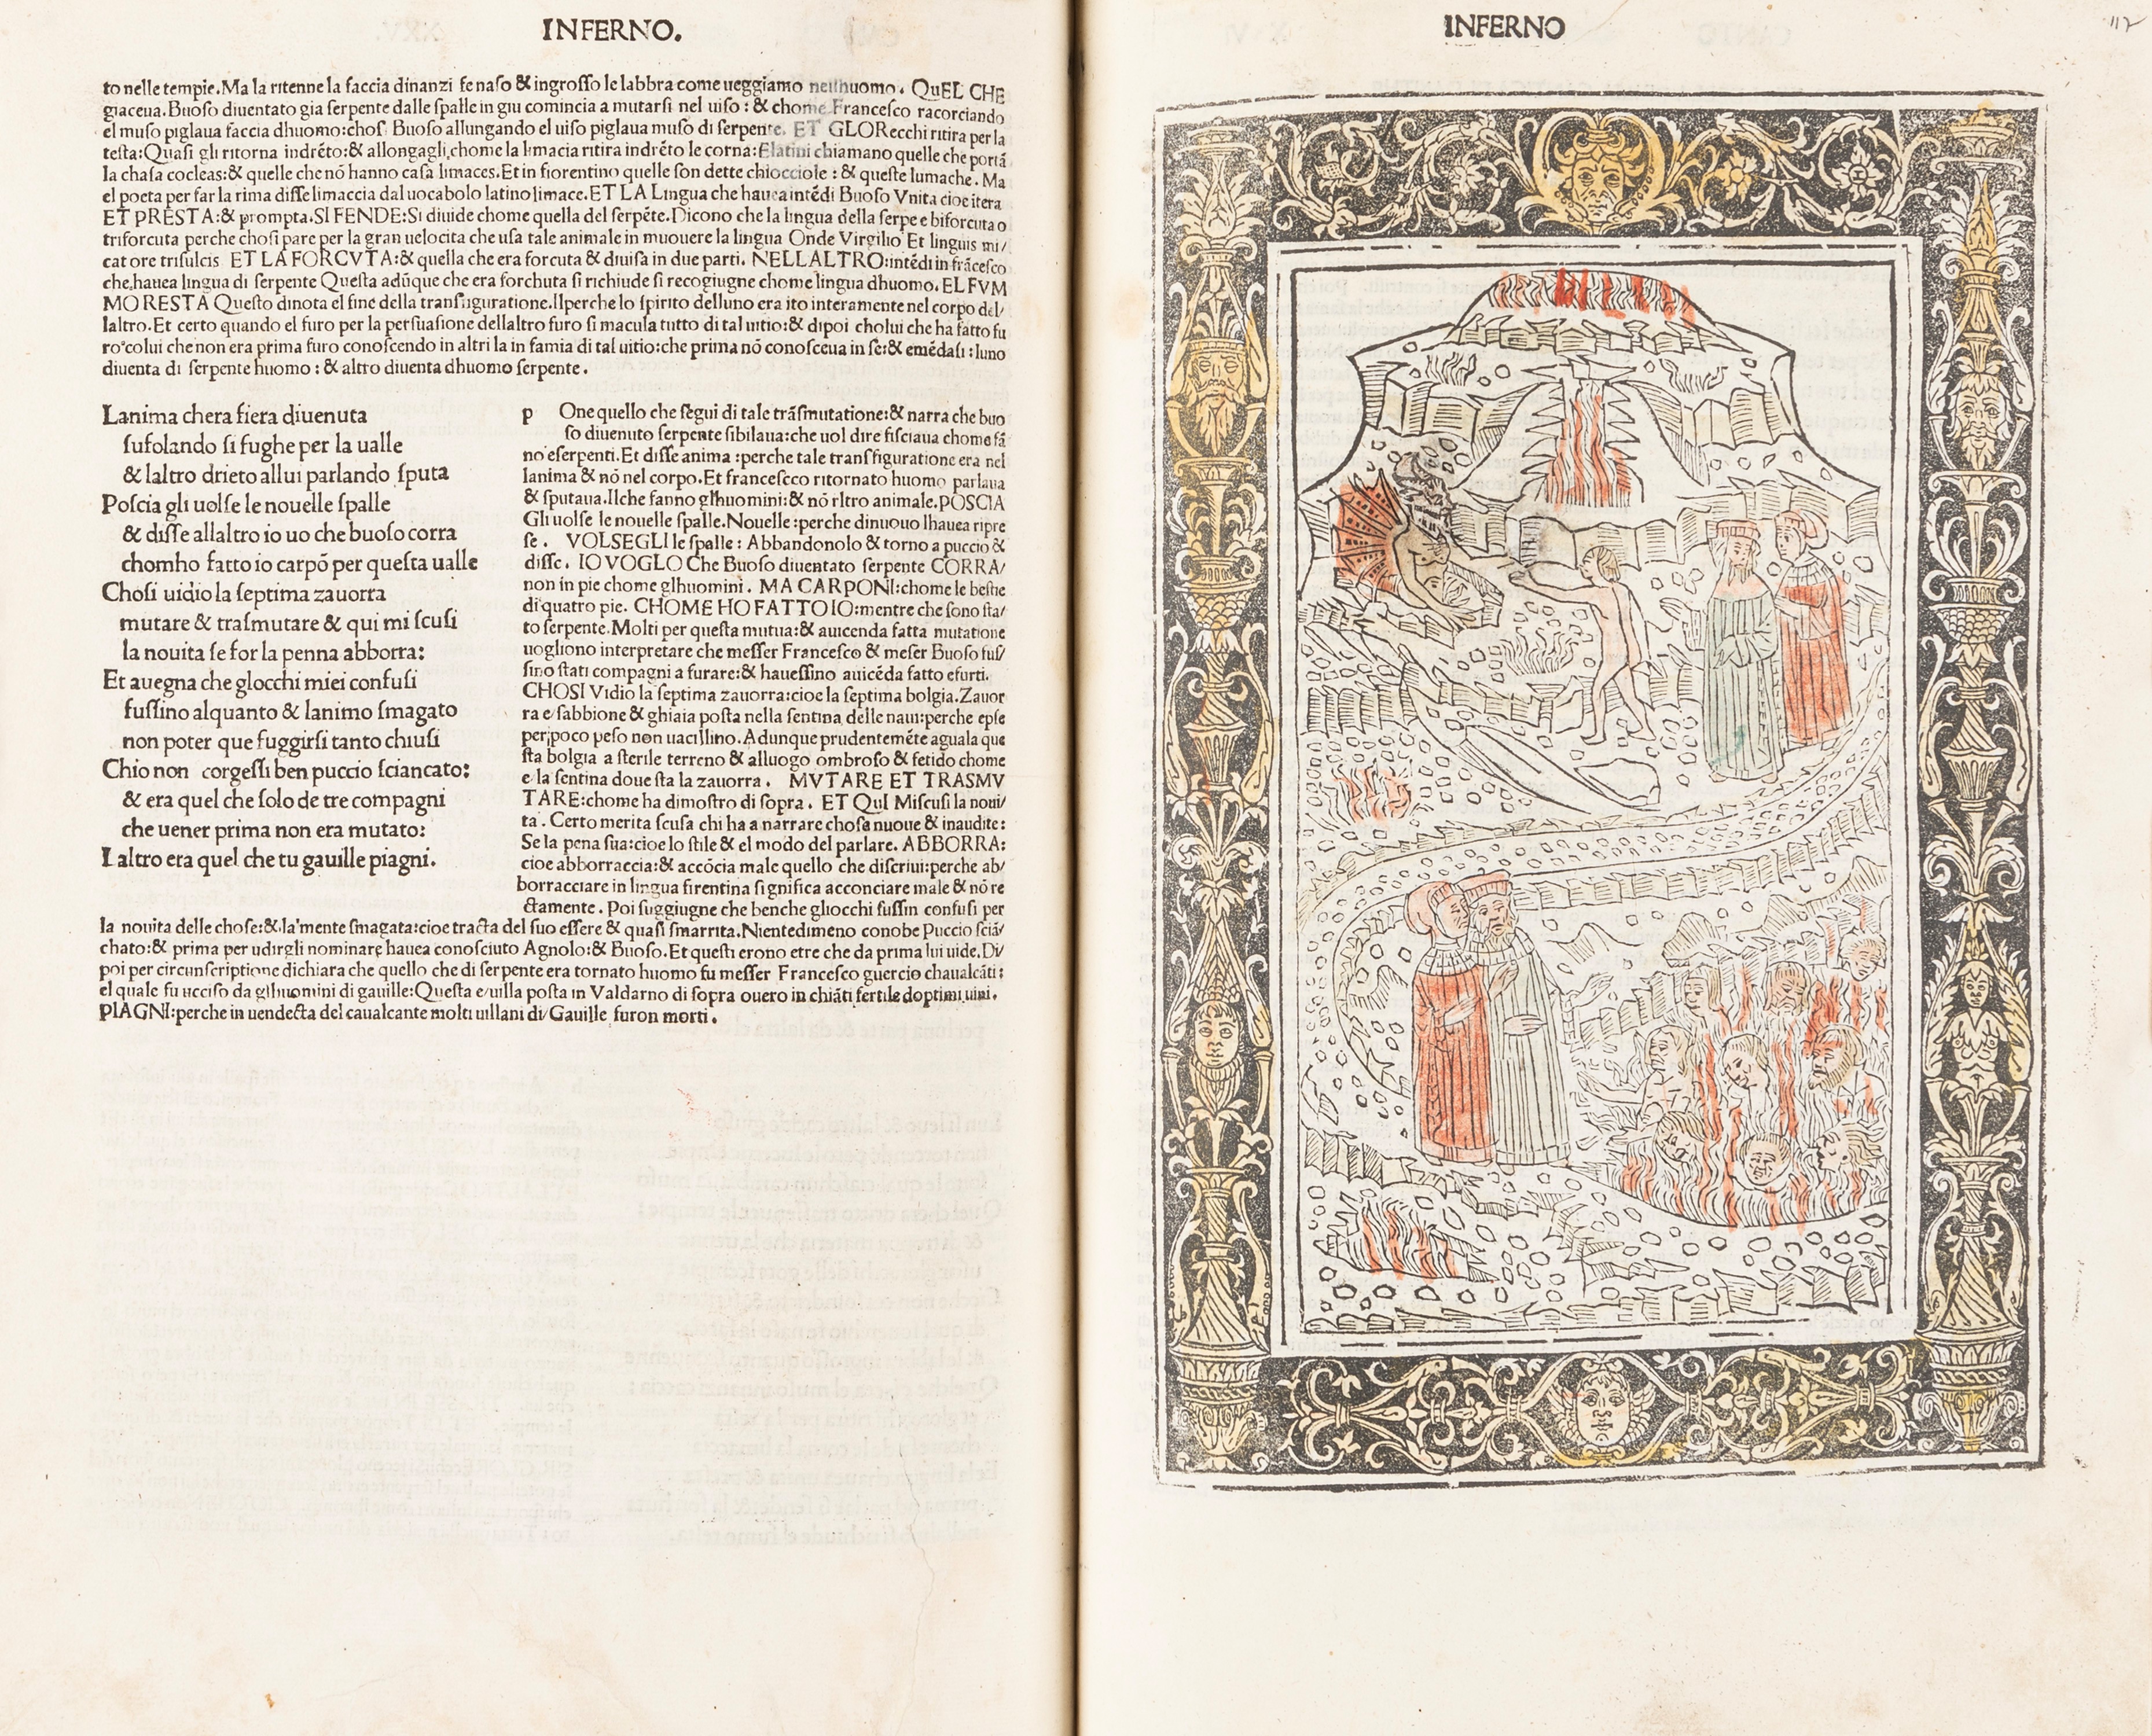 INFERNO.
to nelle tempie.Ma la ritenne la faccia dinanzi fe naſo & ingroſſo le labbra come ueggiamo nellhuomo. QuEL CHE
giaceua.Buoſo diuentato gia ſerpente dalle ſpalle in giu comincia a mutarſi nel uiſo : & chome Francesco racorciando
el muſo piglaua faccia dhuomo:choſ Buoſo allungando el uiſo piglaua muſo di ſerpente. ET GLORecchi ritira per la
teſta:Quaſi gli ritorna indrẽto:& allongagli,chome la limacia ritira indrẽto le corna:Elatini chiamano quelle che portã
la chaſa cocleas:& quelle che nõ hanno caſa limaces.Et in fiorentino quelle ſon dette chiocciole : & queſte lumache. Ma
el poeta per far la rima diſſe limaccia dal uocabolo latino limace.ET LA Lingua che hauea intẽdi Buoſo Vnita cioe itera
ET PRESTA:& prompta.SI FENDE:Si diuide chome quella del ſerpẽte.Dicono che la lingua della ſerpe e biforcuta o
triforcuta perche choſi pare per la gran uelocita che uſa tale animale in muouere la lingua Onde Virgilio Et linguis mi/
cat ore triſulcis ET LA FORCVTA:& quella che era forcuta & diuiſa in due parti. NELLALTRO:intẽdi in frãceſco
che,hauea lingua di ſerpente Queſta adũque che era forchuta ſi richiude ſi recogiugne chome lingua dhuomo. EL FVM
MO RESTA Queſto dinota el fine della tranſfiguratione.Ilperche lo ſpirito delluno era ito interamente nel corpo del/
laltro.Et certo quando el furo per la perſuaſione dellaltro furo ſi macula tutto di tal uitio:& dipoi cholui che ha fatto fu
ro colui che non era prima furo conoſcendo in altri la in famia di tal uitio:che prima nõ conoſceua in ſe:& emẽdaſi : luno
diuenta di ſerpente huomo : & altro diuenta dhuomo ſerpente.
Lanima chera fiera diuenuta
ſufolando ſi fughe per la ualle
& laltro drieto allui parlando ſputa
Poſcia gli uolſe le nouelle ſpalle
& diſſe allaltro io uo che buoſo corra
chomho fatto io carpõ per queſta ualle
Choſi uidio la ſeptima zauorra
mutare & traſmutare & qui mi ſcuſi
la nouita ſe for la penna abborra:
Et auegna che glocchi miei confuſi
fuſſino alquanto & lanimo ſmagato
non poter que fuggirſi tanto chiuſi
Chio non corgeſſi ben puccio ſciancato:
& era quel che ſolo de tre compagni
che uener prima non era mutato:
Laltro era quel che tu gauille piagni.
p One quello che ſegui di tale trãſmutatione:& narra che buo
ſo diuenuto ſerpente ſibilaua:che uol dire fiſciaua chome fã
no eſerpenti.Et diſſe anima :perche tale tranſfiguratione era nel
lanima & nõ nel corpo.Et franceſco ritornato huomo parlaua
& ſputaua.Ilche fanno glhuomini:& nõ rltro animale.POSCIA
Gli uolſe le nouelle ſpalle.Nouelle :perche dinuouo lhauea ripre
ſe . VOLSEGLI le ſpalle : Abbandonolo & torno a puccio &
diſſe. IO VOGLO Che Buoſo diuentato ſerpente CORRA/
non in pie chome glhuomini. MA CARPONI:chome le beſtie
di quatro pie. CHOME HO FATTO IO:mentre che ſono ſta/
to ſerpente.Molti per queſta mutua:& auicenda fatta mutatione
uogliono interpretare che meſſer Franceſco & meſer Buoſo fuſ/
ſino ſtati compagni a furare:& haueſſino auicẽda fatto efurti.
CHOSI Vidio la ſeptima zauorra:cioe la ſeptima bolgia.Zauor
ra e ſabbione & ghiaia poſta nella ſentina delle naui:perche epſe
per poco peſo non uacillino.Adunque prudentemẽte aguala que
ſta bolgia a ſterile terreno & alluogo ombroſo & fetido chome
e la ſentina doue ſta la zauorra. MVTARE ET TRASMV
TARE:chome ha dimoſtro di ſopra. ET QuI Miſcuſi la noui/
ta . Certo merita ſcuſa chi ha a narrare choſa nuoue & inaudite:
Se la pena ſua:cioe lo ſtile & el modo del parlare. ABBORRA:
cioe abborraccia:& accõcia male quello che diſcriui:perche ab/
borracciare in lingua firentina ſignifica acconciare male & nõ re
ctamente. Poi ſuggiugne che benche gliocchi fuſſin confuſi per
la nouita delle choſe:& la mente ſmagata:cioe tracta del ſuo eſſere & quaſi ſmarrita.Nientedimeno conobe Puccio ſciã/
chato:& prima per udirgli nominare hauea conoſciuto Agnolo:& Buoſo.Et queſti erono etre che da prima lui uide.Di/
poi per circunſcriptione dichiara che quello che di ſerpente era tornato huomo fu meſſer Franceſco guercio chaualcãti:
el quale fu ucciſo da glhuomini di gauille:Queſta e uilla poſta in Valdarno di ſopra ouero in chiãti fertile doptimi uini.
PIAGNI:perche in uendecta del caualcante molti uillani di Gauille furon morti.
INFERNO
117